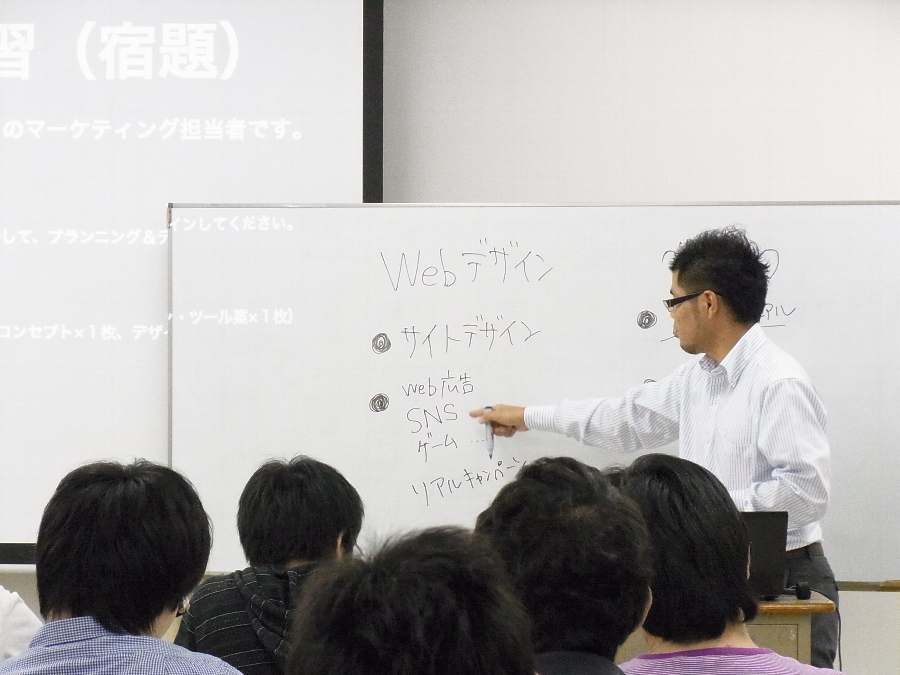 習（宿題）
のマーケティング担当者です。
して、プランニング＆デインしてください。
コンセプト×1枚、デザイ・ツール案×1枚）
Webデザイン
サイトデザイン
web広告
SNS
ゲーム…
リアルキャンペーン
アル